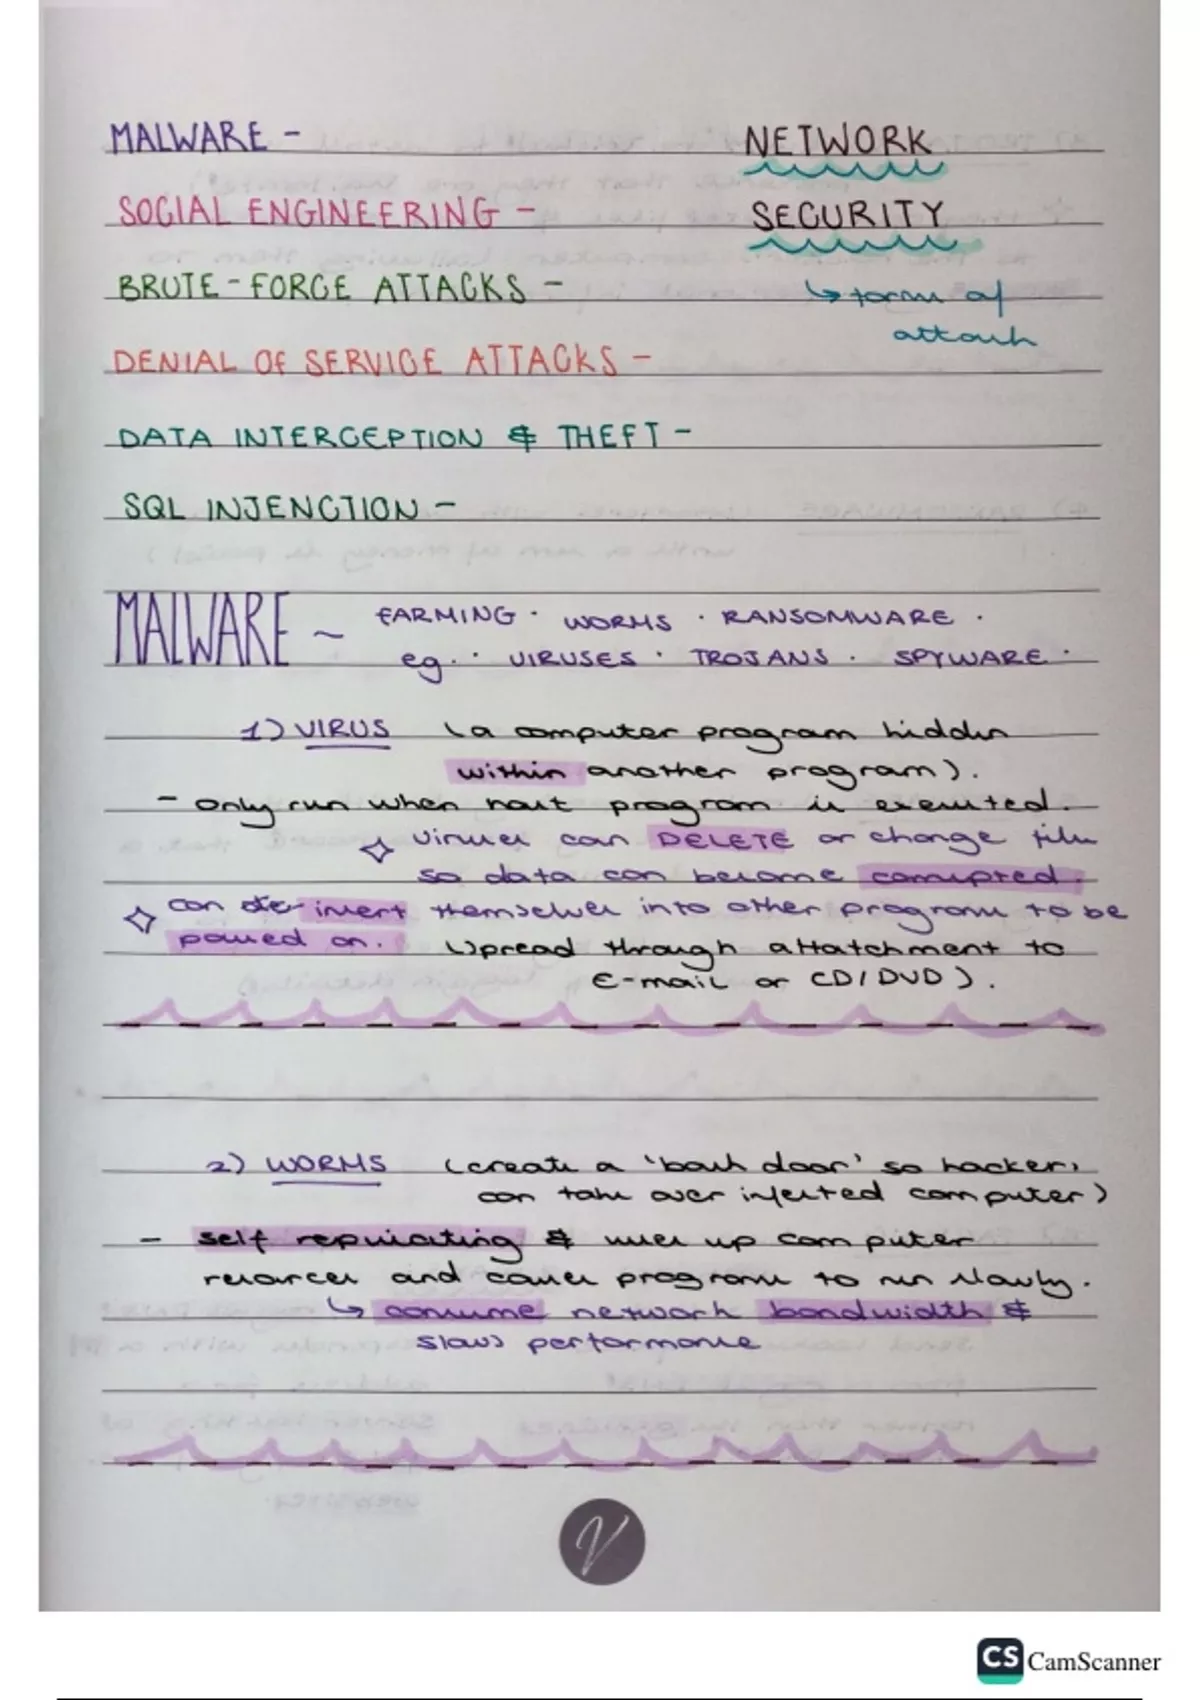 MALWARE -
NETWORK
SOCIAL ENGINEERING -
SECURITY
BRUTE-FORCE ATTACKS -
↳ forms of
attack
DENIAL OF SERVICE ATTACKS -
DATA INTERCEPTION & THEFT -
SQL INJENCTION -
MALWARE ~ FARMING · WORMS · RANSOMWARE ·
eg. · VIRUSES · TROJANS · SPYWARE ·
1) VIRUS (a computer program hidden
within another program).
- only run when host program is executed.
✧ viruses can DELETE or change files
so data can become corrupted.
✧ can insert themselves into other programs to be
passed on. (spread through attatchment to
E-mail or CD/DVD).
2) WORMS (create a 'back door' so hackers
can take over infected computer)
- self repuicating & uses up computer
resources and causes programs to run slowly.
↳ consume network bandwidth &
slows performance
V
CS CamScanner